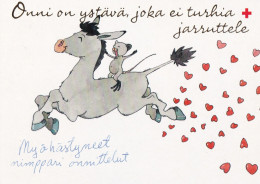 Onni on ystävä, joka ei turhia
jarruttele
Myöhästyneet
nimppari onnittelut